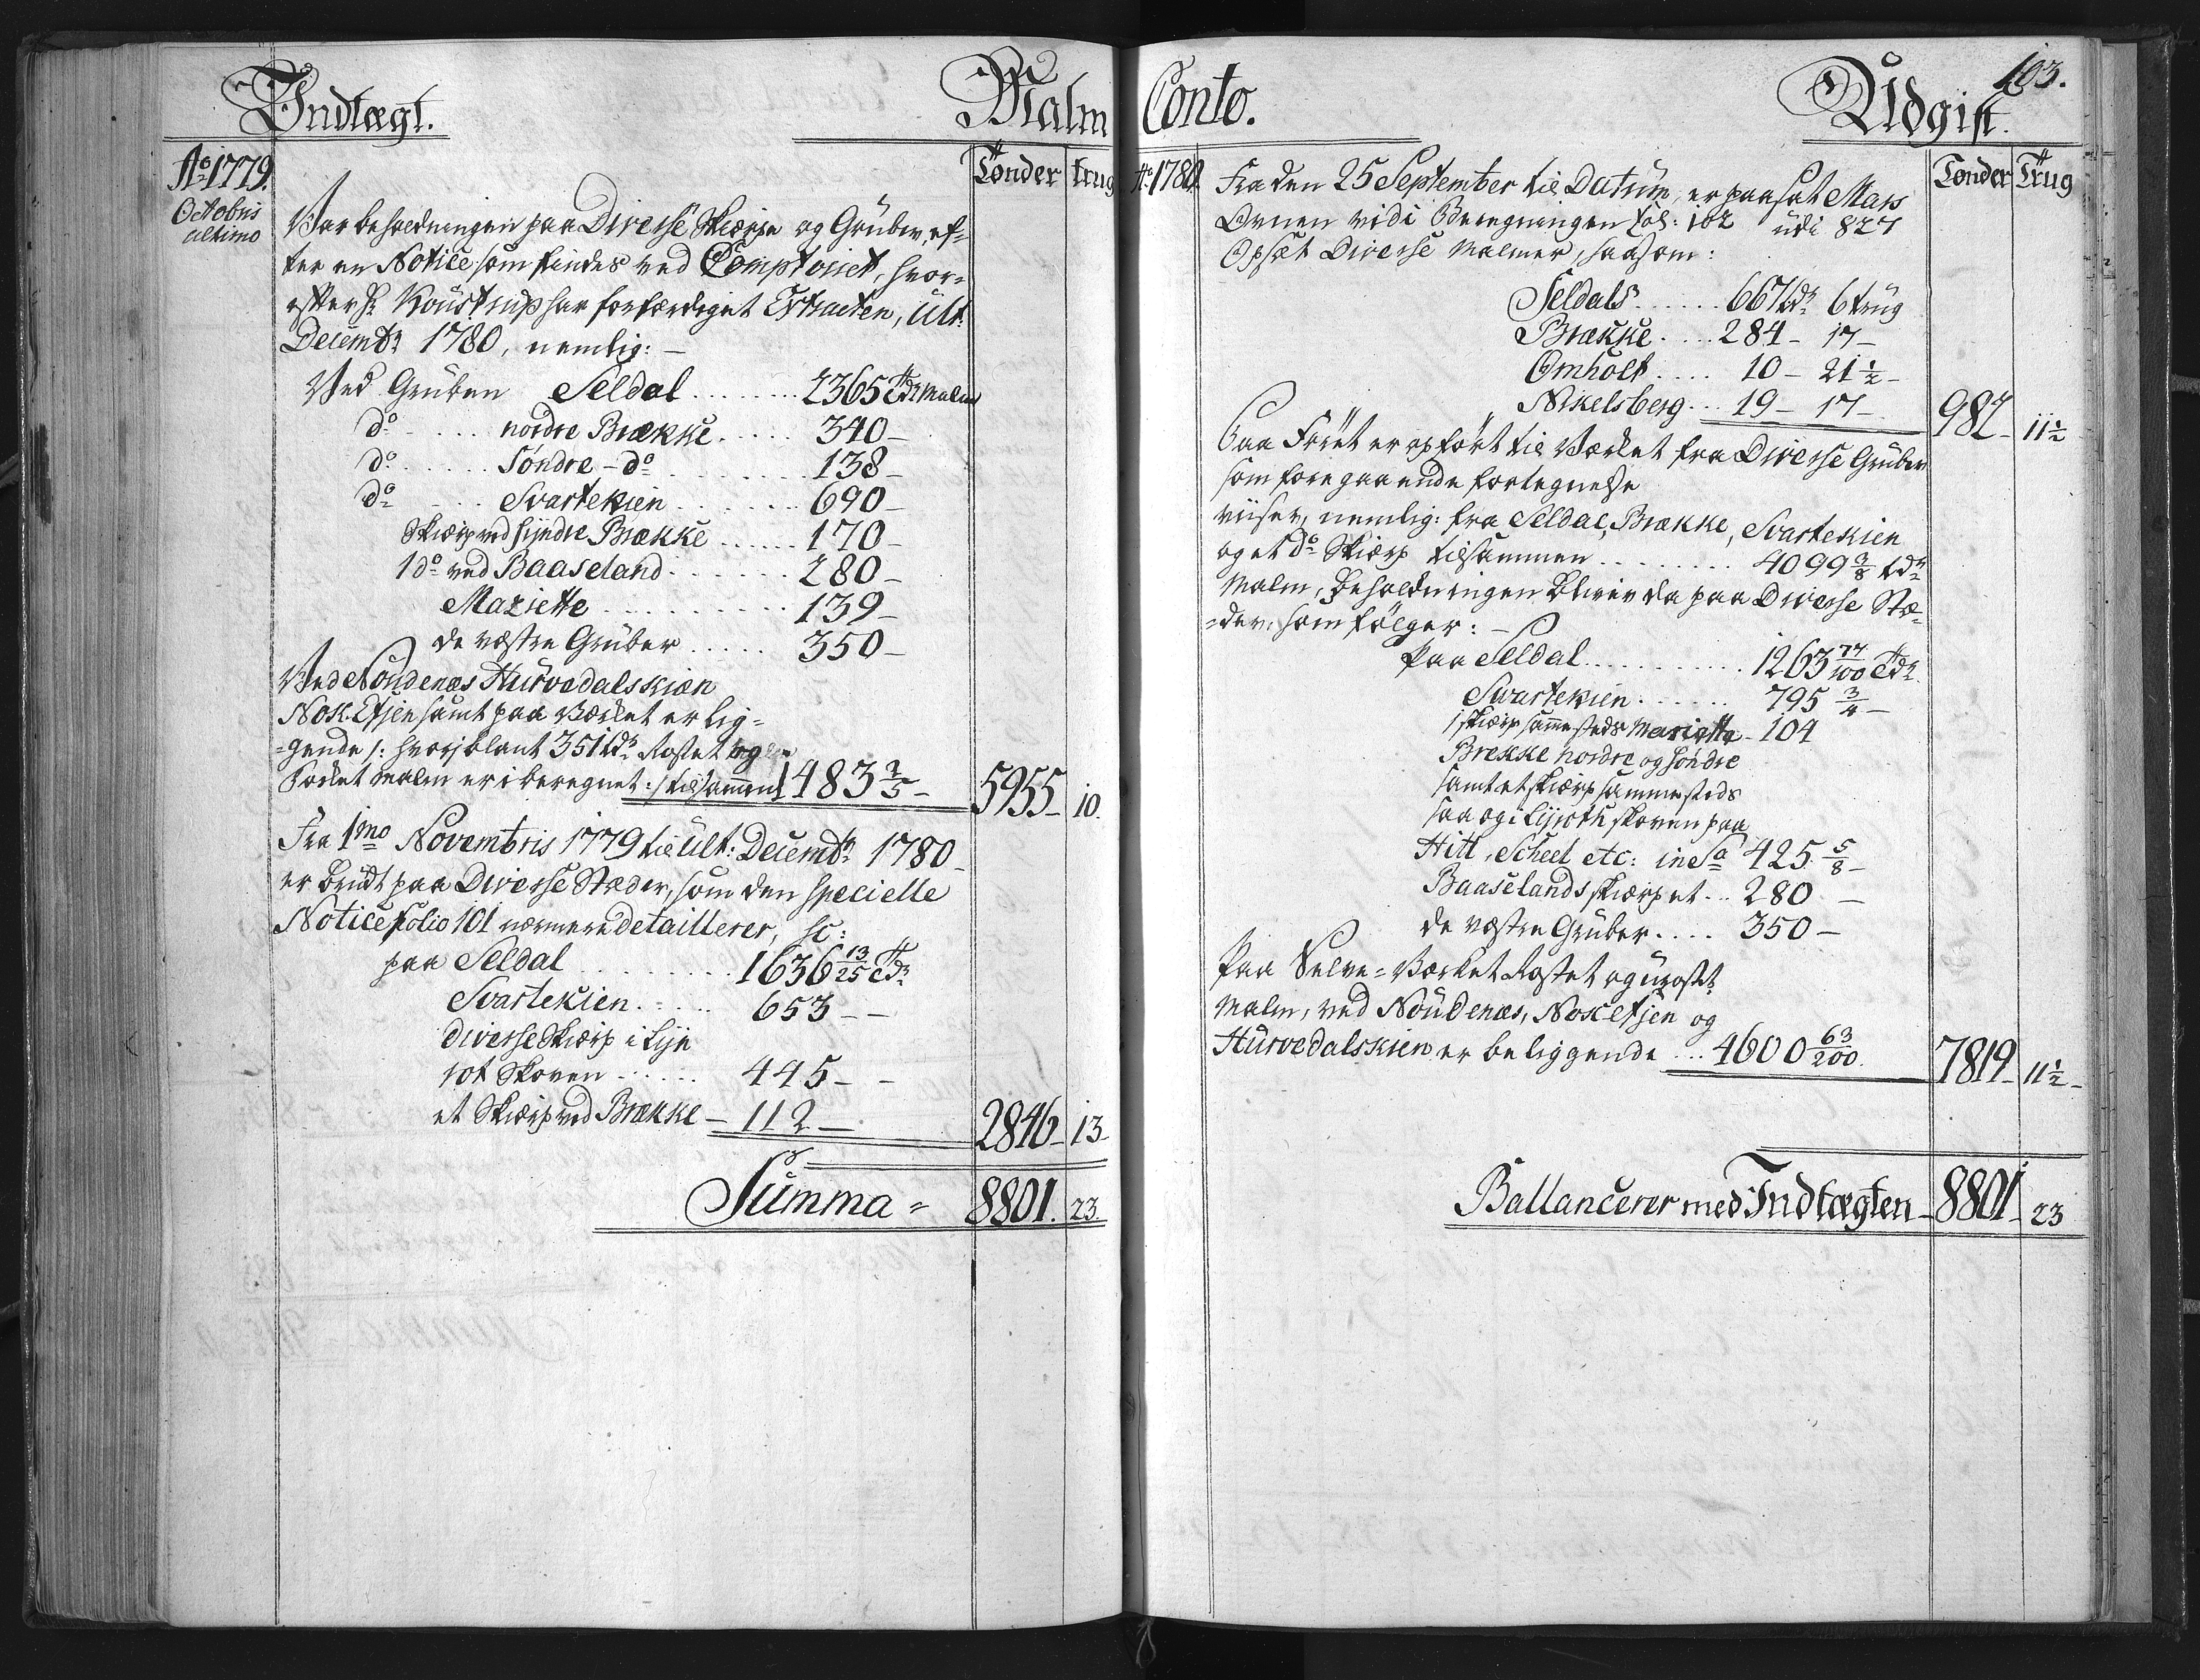 Indtægt.
Malm
Tønder trug
Ao 1779.
Octobris
ultimo
Var beholdningen paa Diverse Skiærp og Grüber, ef-
ter en Notice som findes ved Comptoiret, hvor-
efter Hr Koustrup har forfærdiget Extracten, Ult:
Decembr 1780, nemlig: -
Ved Grüben Seldal ........ 2365 Tdr Malm
do .... nordre Brække ..... 340 -
do ..... Søndre - do ....... 138 -
do .... Svartekien ....... 690 -
Skiærp ved syndre Brække ...... 170 -
1 do ved Baaseland ....... 280 -
Mariette .......... 139 -
de væstre Grüber ..... 350 -
Ved Noudenæs Hurvedalskien
Noxk. Efsjen samt paa Værket er lig-
=gende /: hvoriblant 351 tdr Rostet og
Vasket Malm er i beregnet :/ tilsammen 1483 2/5 - 5955 - 10.
Fra 1mo Novembris 1779 til Ult: Decembr 1780 -
er brüdt paa Diverse Stæder, som den specielle
Notice folio 101 nærmere detaillerer, sc:
paa Seldal ......... 1636 13/25 Tdr
Svartekien ..... 653 - -
diverse Skiærp i Lijn
rot Skoven ...... 445 - -
et Skiærp ved Brække - 112 - 2846 - 13 -
Summa = 8801. 23.
Conto.
Udgift.
103.
Ao 1780.
Tønder Trüg
Fra den 25 September til Datum, er paasat Mas
Ovnen vidi Beregningen fol: 102 udi 827
Opsæt Diverse Malmer, saasom:
Seldals ...... 667 tdr 6 trüg
Brække .... 284 - 17 -
Omholt .... 10 - 21 1/2 -
Nikelsberg ... 19 - 17 - 982 - 11 1/2
Paa Føret er opført til Værket fra Diverse Grüber
som foregaaende fortegnelse
viiser, nemlig: fra Seldal, Brække, Svartekien
og et do Skiærp tilsammen ........ 4099 3/8 tdr
Malm, Beholdningen bliver da paa Diverse Stæ-
=der, som følger: -
Paa Seldal .......... 1263 77/100 Tdr
Svartekien ...... 795 3/4 -
1 skiærp sammesteds Mariette - 104
Brekke nordre og søndre
samt et skiærp sammesteds
saa og i Lijnroth skoven paa
Hitt, Scheel etc: in Sa 425 5/8 -
Baaselands skiærpet .. 280 -
de væstre Grüber .... 350 -
Paa Selve = Værket Rostet og ürostet
Malm, ved Noüdenæs, Noxefsjen og
Hürvedalskien er beliggende ... 4600 63/200 7819 - 11 1/2 -
Ballancerer med Indtægten - 8801 - 23